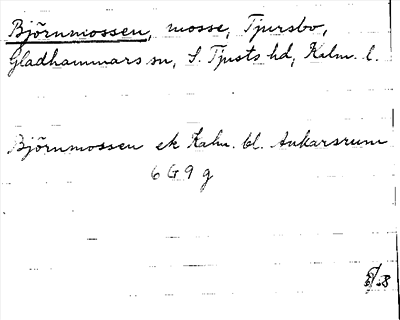 Björnmossen, mosse, Tjursbo,
Gladhammars sn, S. Tjusts hd, Kalm. l.
Björnmossen ek Kalm. bl. Ankarsrum
6 G 9 g